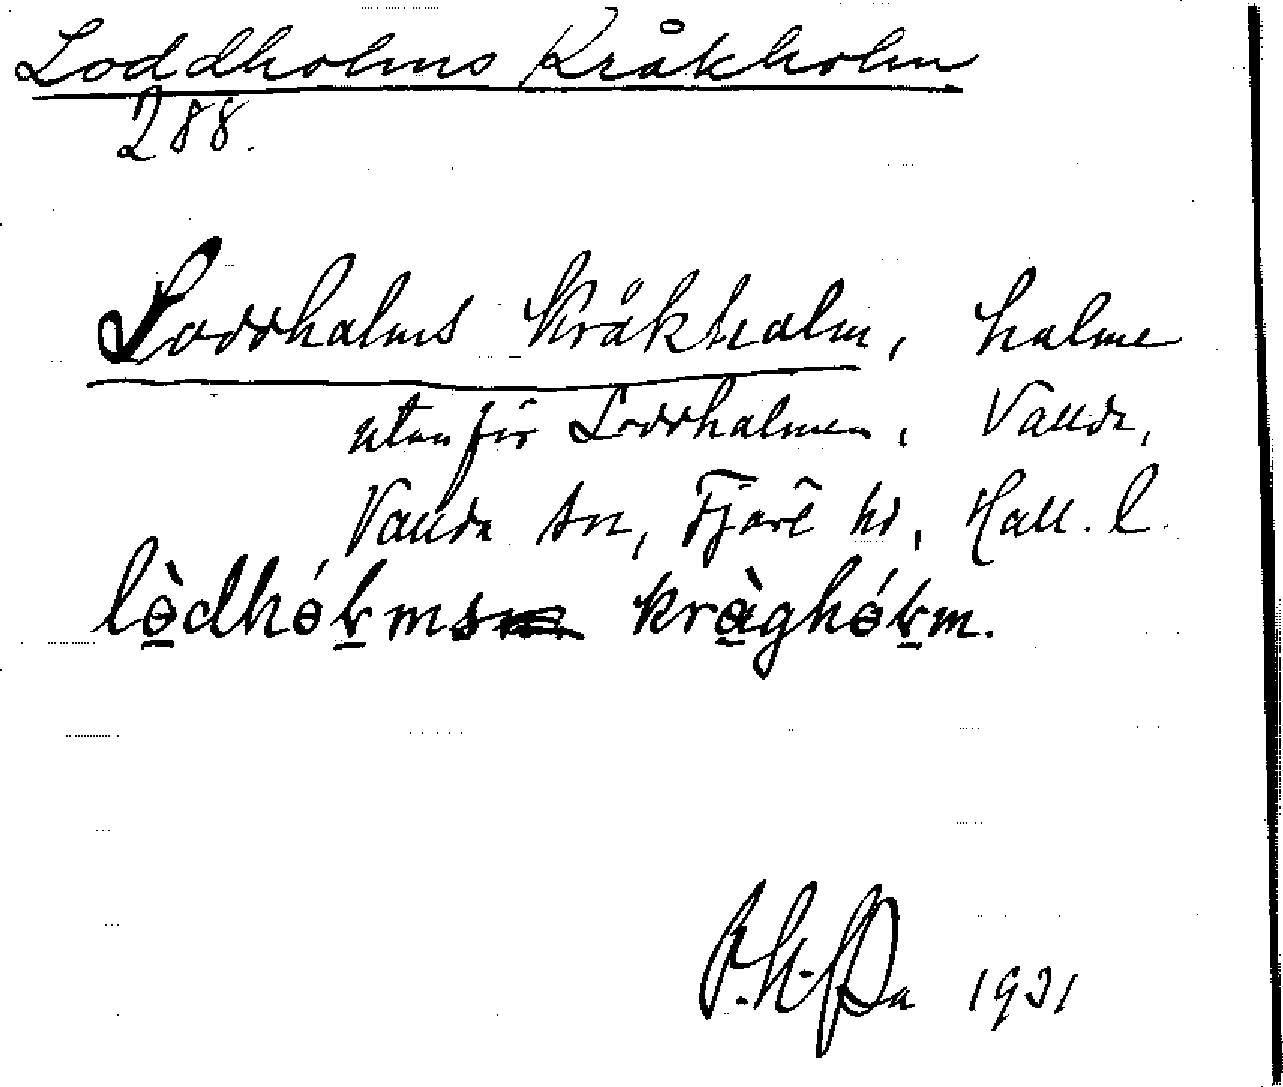 Loddholms Kråkholm
288.
Loddholms Kråkholm, holme
utanför Loddholmen, Vallda,
Vallda sn, Fjäre hd, Hall. l.
lò̠̠dhólm̠s kràghólm.
1931